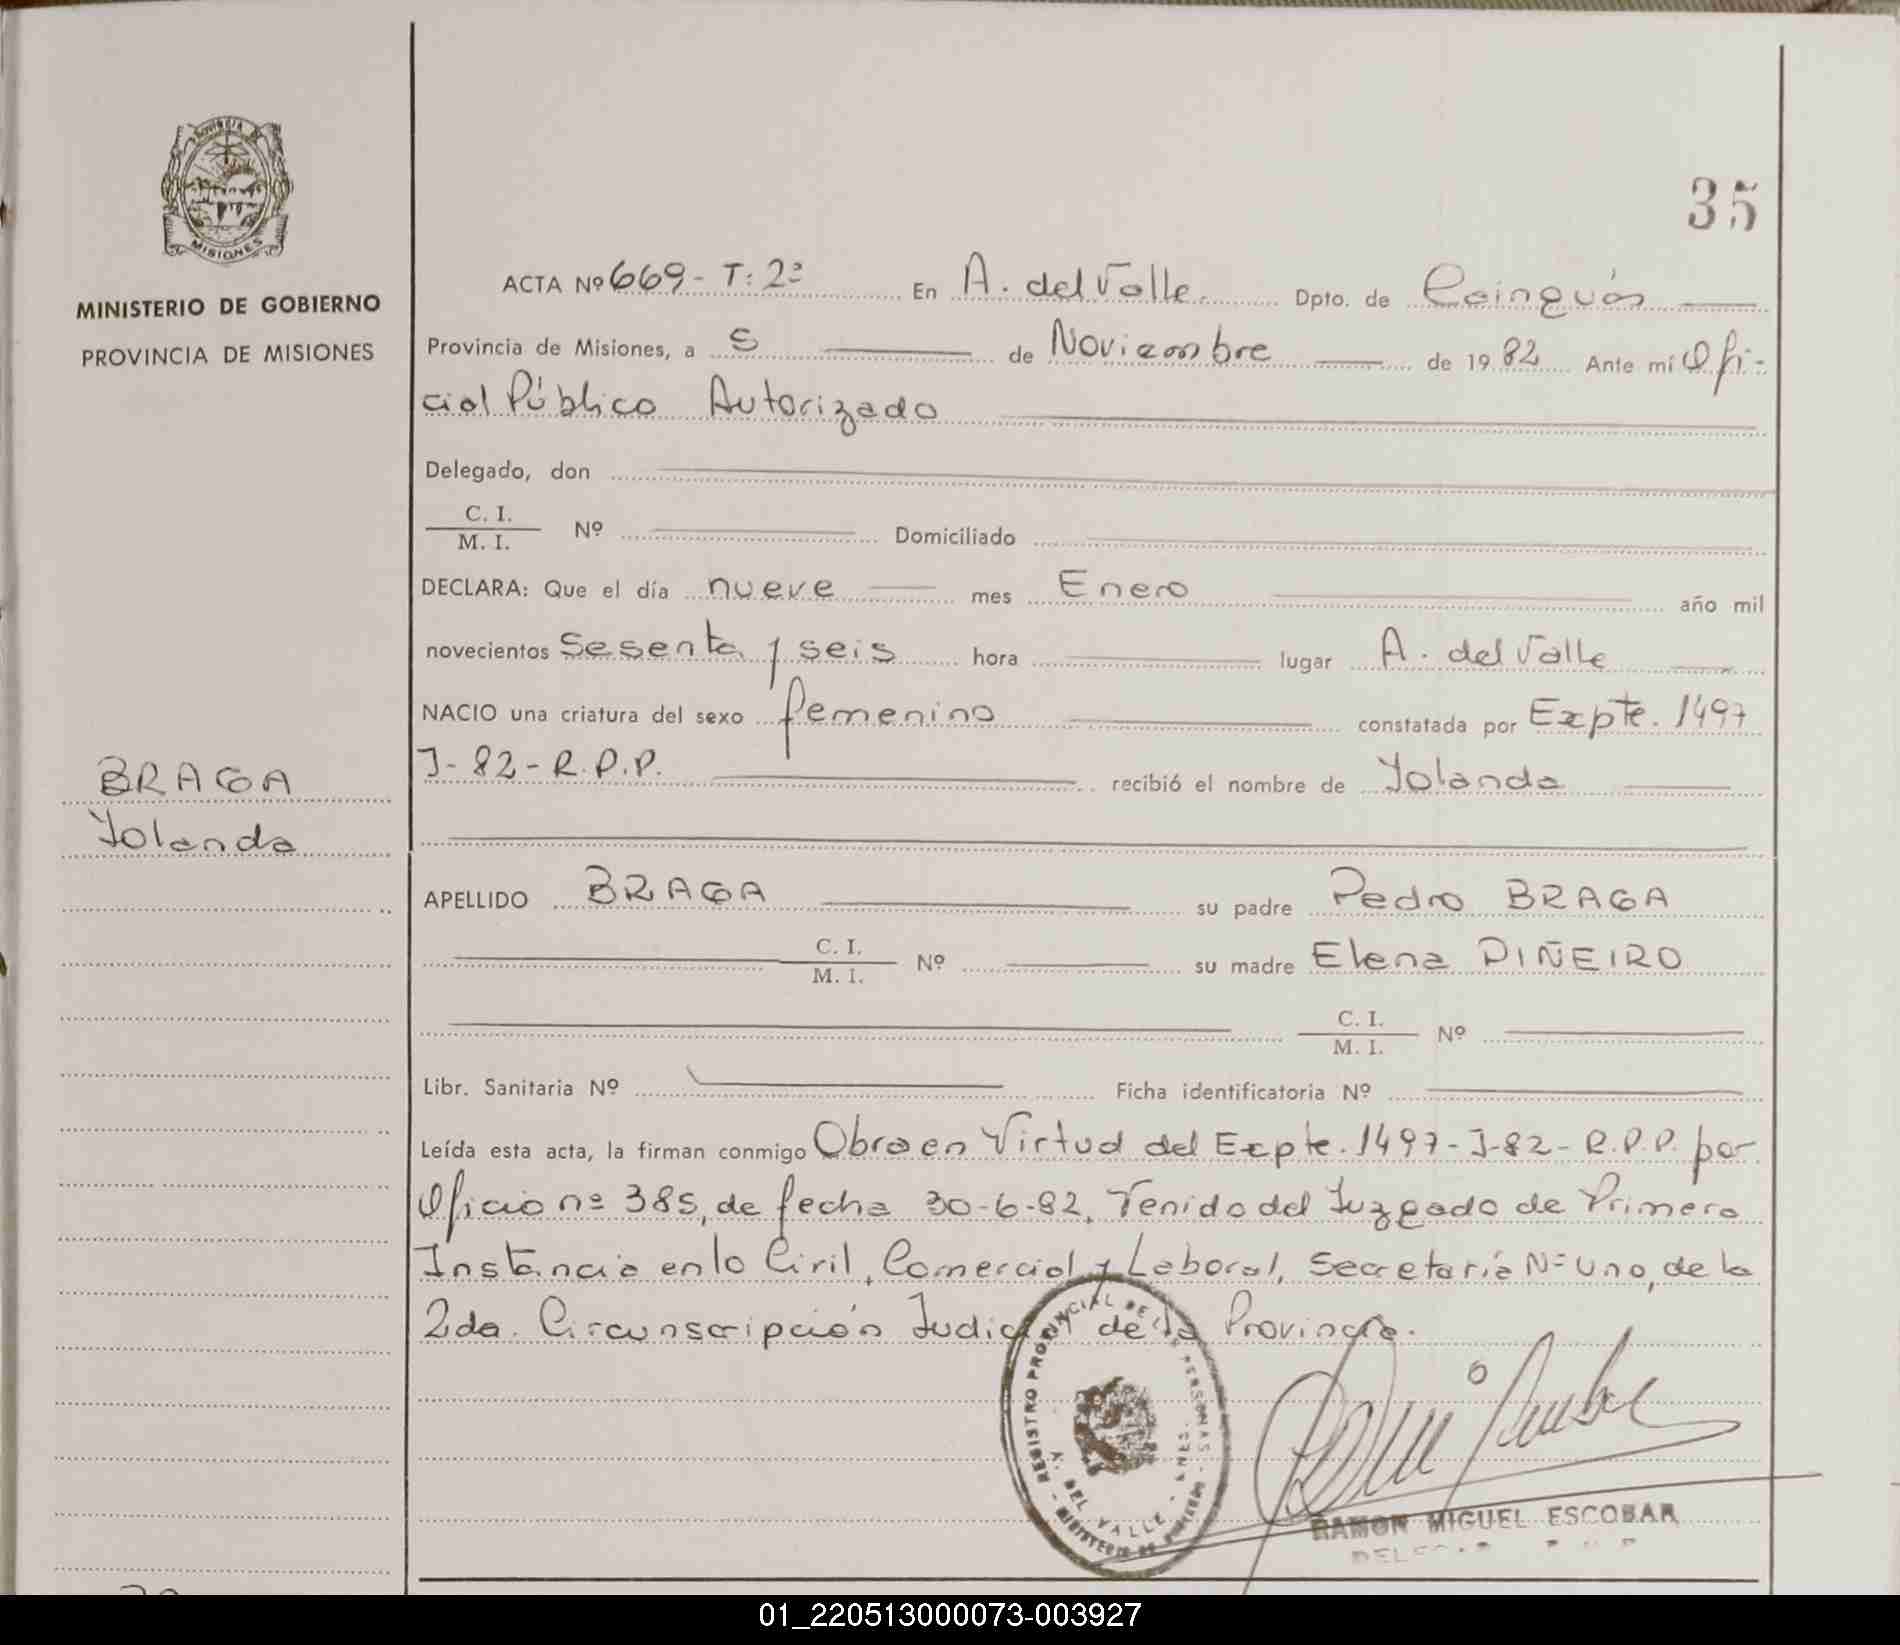 35
PROVINCIA DE
MISIONES
MINISTERIO DE GOBIERNO
PROVINCIA DE MISIONES
ACTA Nº 669 - T: 2º En A. del Valle. Dpto. de Cainguás
Provincia de Misiones, a 5 de Noviembre de 1982 Ante mí Ofi-
cial Público Autorizado
Delegado, don
C. I.
M. I. Nº Domiciliado
DECLARA: Que el día nueve mes Enero año mil
novecientos Sesenta y seis hora lugar A. del Valle
NACIO una criatura del sexo femenino constatada por Expte. 1497
J-82-R.P.P. recibió el nombre de Yolanda
BRAGA
Yolanda
APELLIDO BRAGA su padre Pedro BRAGA
C. I.
M. I. Nº su madre Elena PIÑEIRO
C. I.
M. I. Nº
Libr. Sanitaria Nº Ficha identificatoria Nº
Leída esta acta, la firman conmigo Obra en Virtud del Expte. 1497-J-82-R.P.P. por
Oficio nº 385, de fecha 30-6-82, Venido del Juzgado de Primera
Instancia en lo Civil, Comercial y Laboral, Secretaría Nº Uno, de la
2da. Circunscripción Judicial de la Provincia.
REGISTRO PROVINCIAL DE PERSONAS
A. DEL VALLE
MINISTERIO DE GOBIERNO
RAMON MIGUEL ESCOBAR
01_220513000073-003927